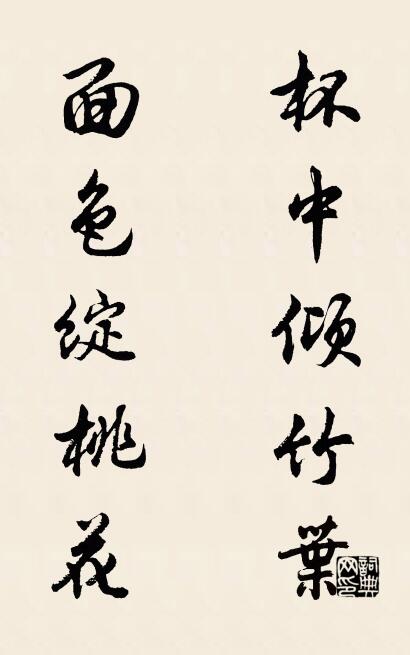 杯中倾竹葉
面色綻桃花
詞典网印